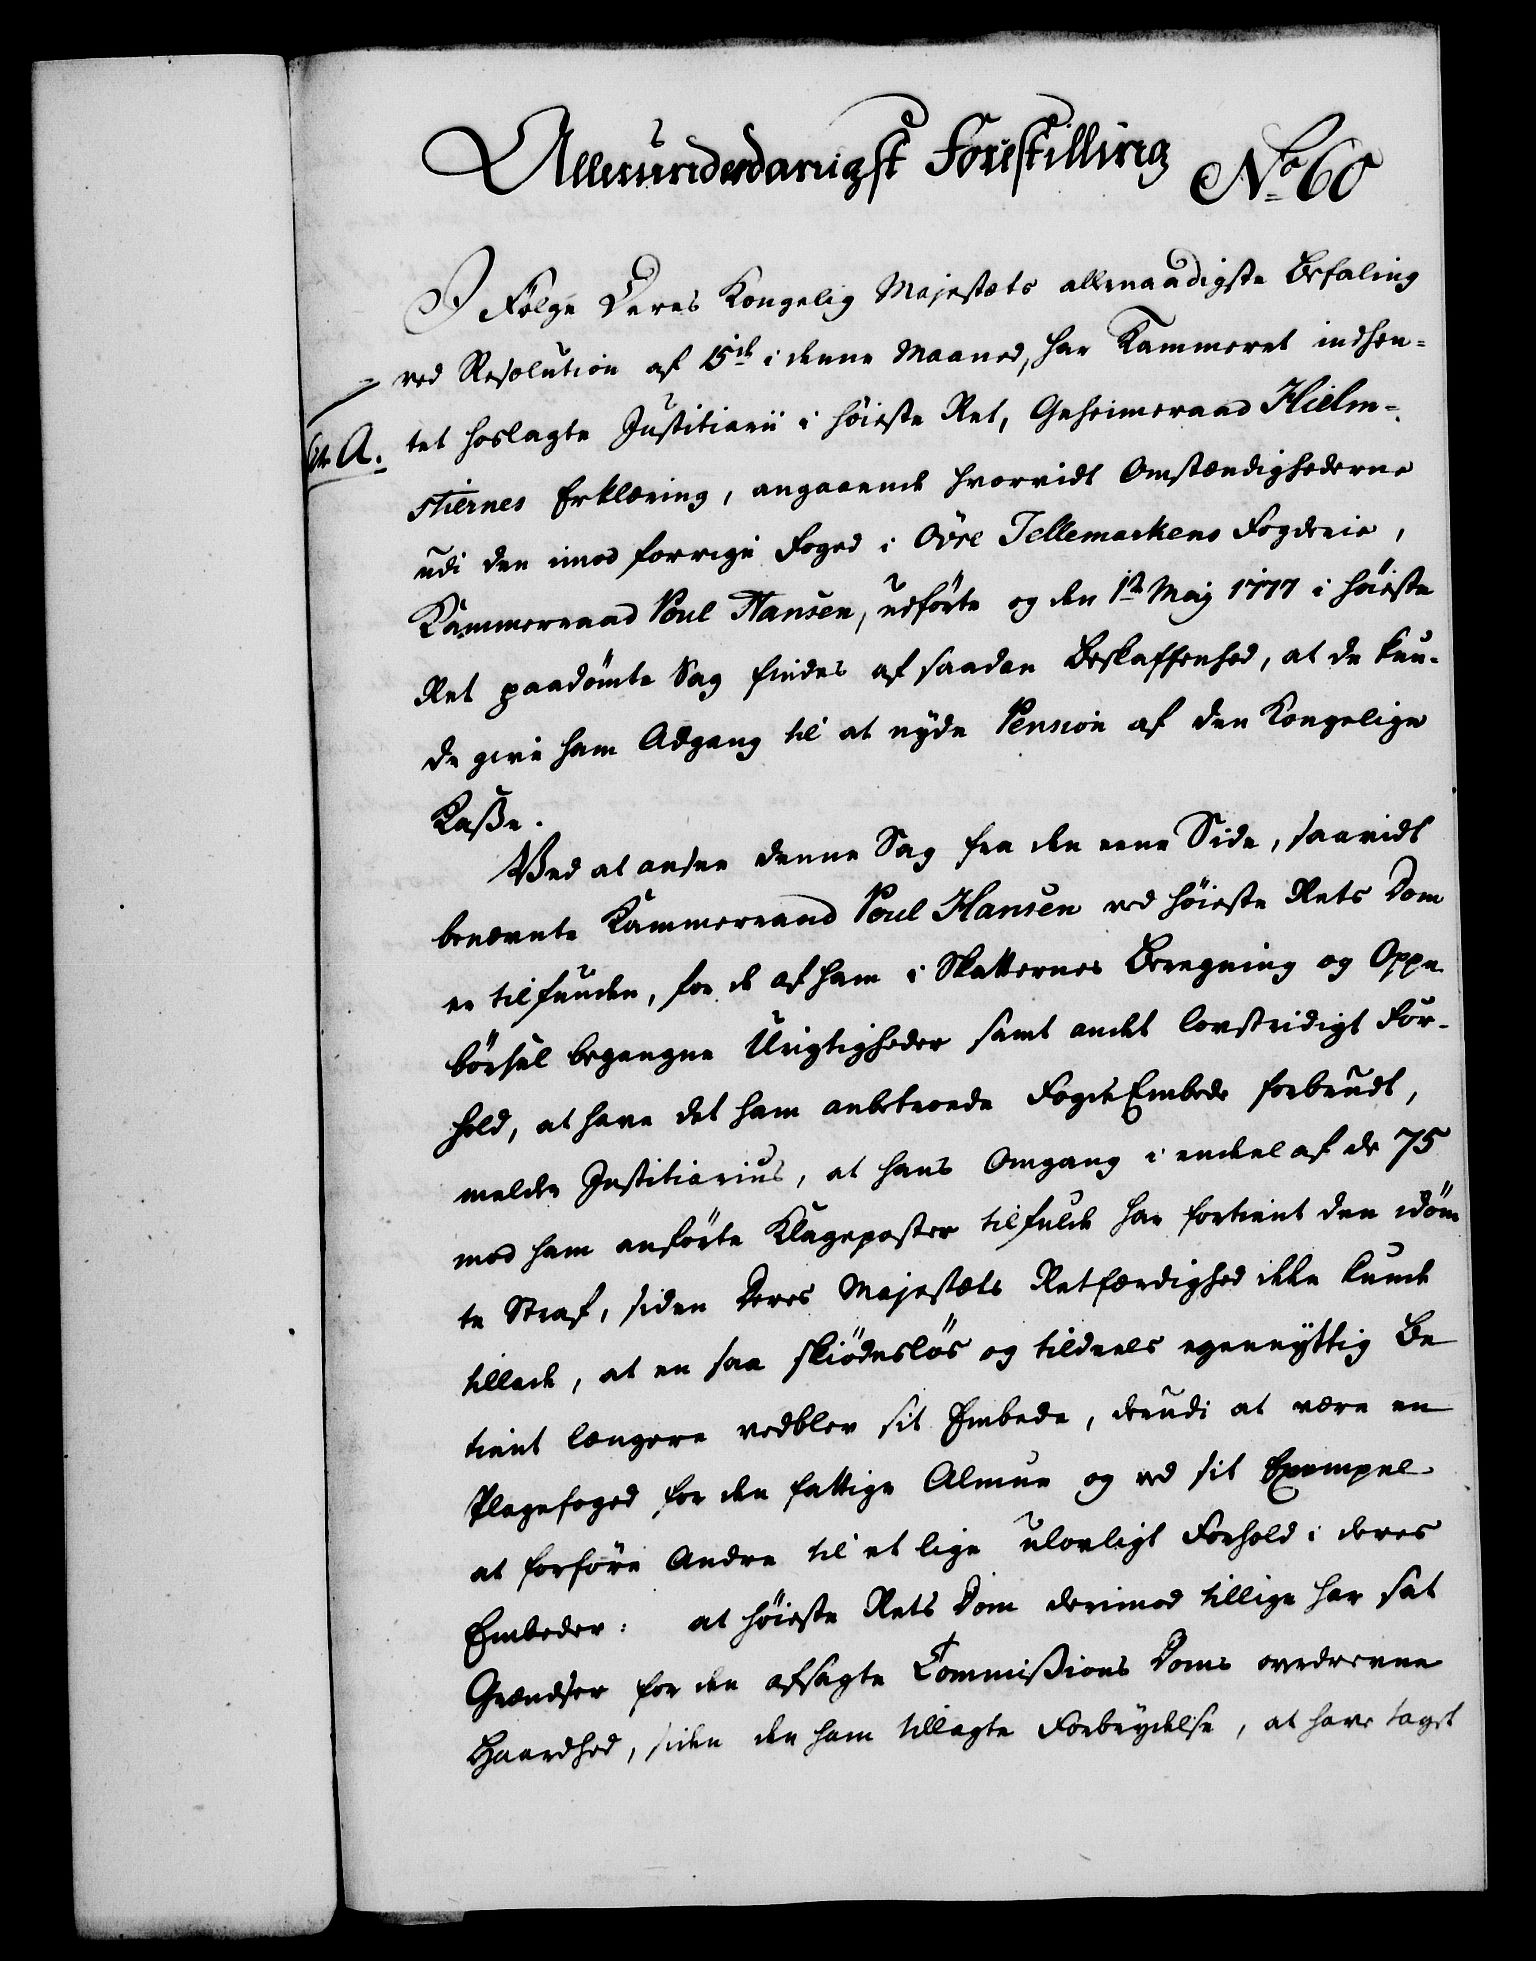 Allerunderdanigst Forestilling
No 60
I Følge Deres Kongelig Majestæts allernaadigste Befaling
ved Resolution af 15de i denne Maaned, har Kammeret indhen-
Litr A.
tet hoslagte Justitiarii i höieste Ret, Geheimeraad Hielm-
stiernes Erklæring, angaaende hvorvidt Omstændighederne
udi den imod forrige Foged i Övre Tellemarkens Fogderie,
Kammerraad Poul Hansen, udförte og den 1te Maj 1777 i höieste
Ret paadömte Sag findes af saadan Beskaffenhed, at de kun-
de give ham Adgang til at nyde Pension af den Kongelige
Kasse.
Ved at ansee denne Sag fra den eene Side, saavidt
benævnte Kammerraad Poul Hansen ved höieste Rets Dom
er tilfunden, for de af ham i Skatternes Beregning og Oppe
börsel begangne Urigtigheder samt andet lovstridigt For-
hold, at have det ham anbetroede Foget Embede forbrudt,
melder Justitiarius, at hans Omgang i endeel af de 75
mod ham anförte Klageposter tilfulde har fortient den idöm
te Straf, siden Deres Majestæts Retfærdighed ikke kunde
tillade, at en saa skiödeslös og tildeels egennyttig Be
tient længere vedblev sit Embede, derudi at være en
Plagefoged for den fattige Almue og ved sit Exempel
at forföre Andre til et lige ulovligt Forhold i deres
Embeder: at höieste Rets Dom derimod tillige har sat
Grændser for den afsagte Commissions Doms overdrevne
Haardhed, siden den ham tillagte Forbrydelse, at have taget